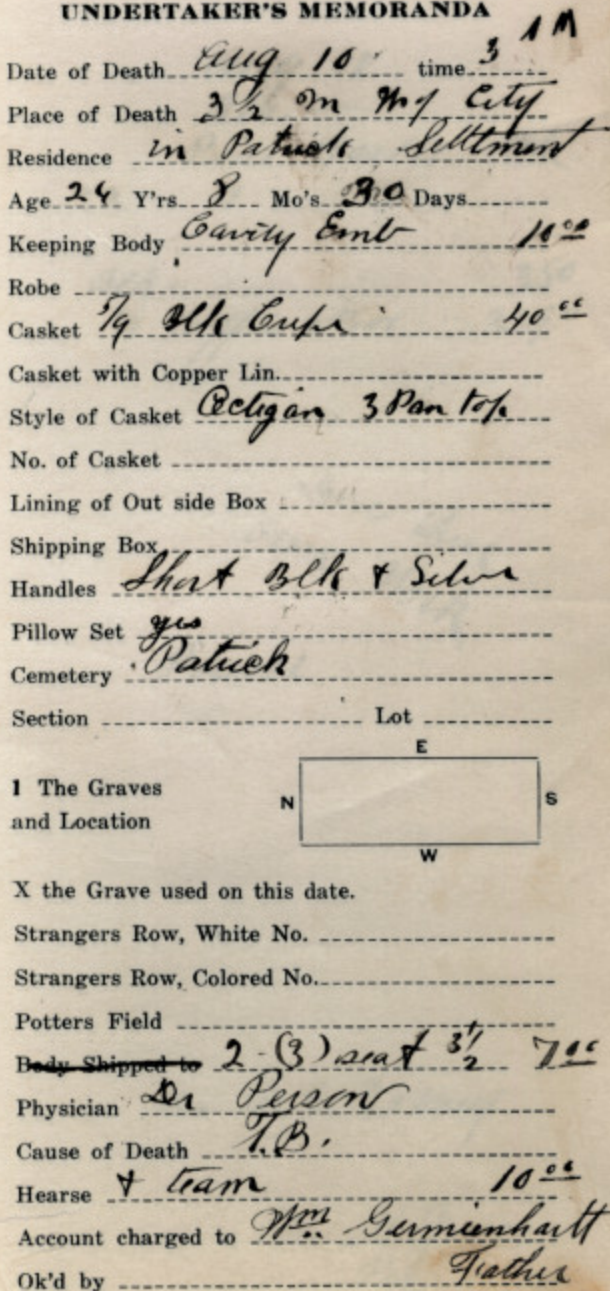 UNDERTAKER'S MEMORANDA
Date of Death Aug 10 time 3 AM
Place of Death 3 1/2 m of City
Residence in Patrick Settlment
Age 24 Y'rs 8 Mo's 30 Days
Keeping Body Cavity Emb 10 00
Robe
Casket 5/9 Blk Crepe 40 00
Casket with Copper Lin.
Style of Casket Octigan 3 Pan top
No. of Casket
Lining of Out side Box
Shipping Box
Handles Short Blk & Silver
Pillow Set yes
Cemetery Patrick
Section Lot
E
1 The Graves
and Location
N S
W
X the Grave used on this date.
Strangers Row, White No.
Strangers Row, Colored No.
Potters Field
Body Shipped to 2 (3) seat 3 1/2 7 00
Physician Dr Person
Cause of Death T.B.
Hearse & team 10 00
Account charged to Wm Germienhartt
Father
Ok'd by